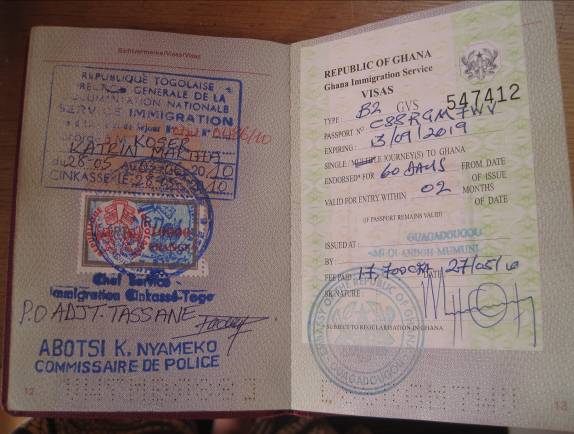 Sichtvermerke/Visas/Visas
REPUBLIQUE TOGOLAISE
GENERALE DE LA
DOCUMENTATION NATIONALE
SERVICE IMMIGRATION
KOSER
KATRIN MARTHA
du 28-05
CINKASSE-LE 28
10000
FRANCS
Chef Service
Immigration Cinkassé-Togo
P.O ADJT. TASSANE
ABOTSI K. NYAMEKO
COMMISSAIRE DE POLICE
12
REPUBLIC OF GHANA
Ghana Immigration Service
VISAS
TYPE: B2 GVS 547412
PASSPORT Nº C88RGM7WV
EXPIRING: 13/09/2019
SINGLE/MULTIPLE JOURNEY(S) TO GHANA
ENDORSED* FOR 60 DAYS FROM DATE
OF ISSUE
VALID FOR ENTRY WITHIN 02 MONTHS
OF DATE
(IF PASSPORT REMAINS VALID)
ISSUED AT: OUAGADOUGOU
BY: MUMUNI
FEE PAID: 17,700CFA DATE 27/05/10
SIGNATURE
*SUBJECT TO REGULARISATION IN GHANA
EMBASSY OF THE REPUBLIC OF GHANA
OUAGADOUGOU
13